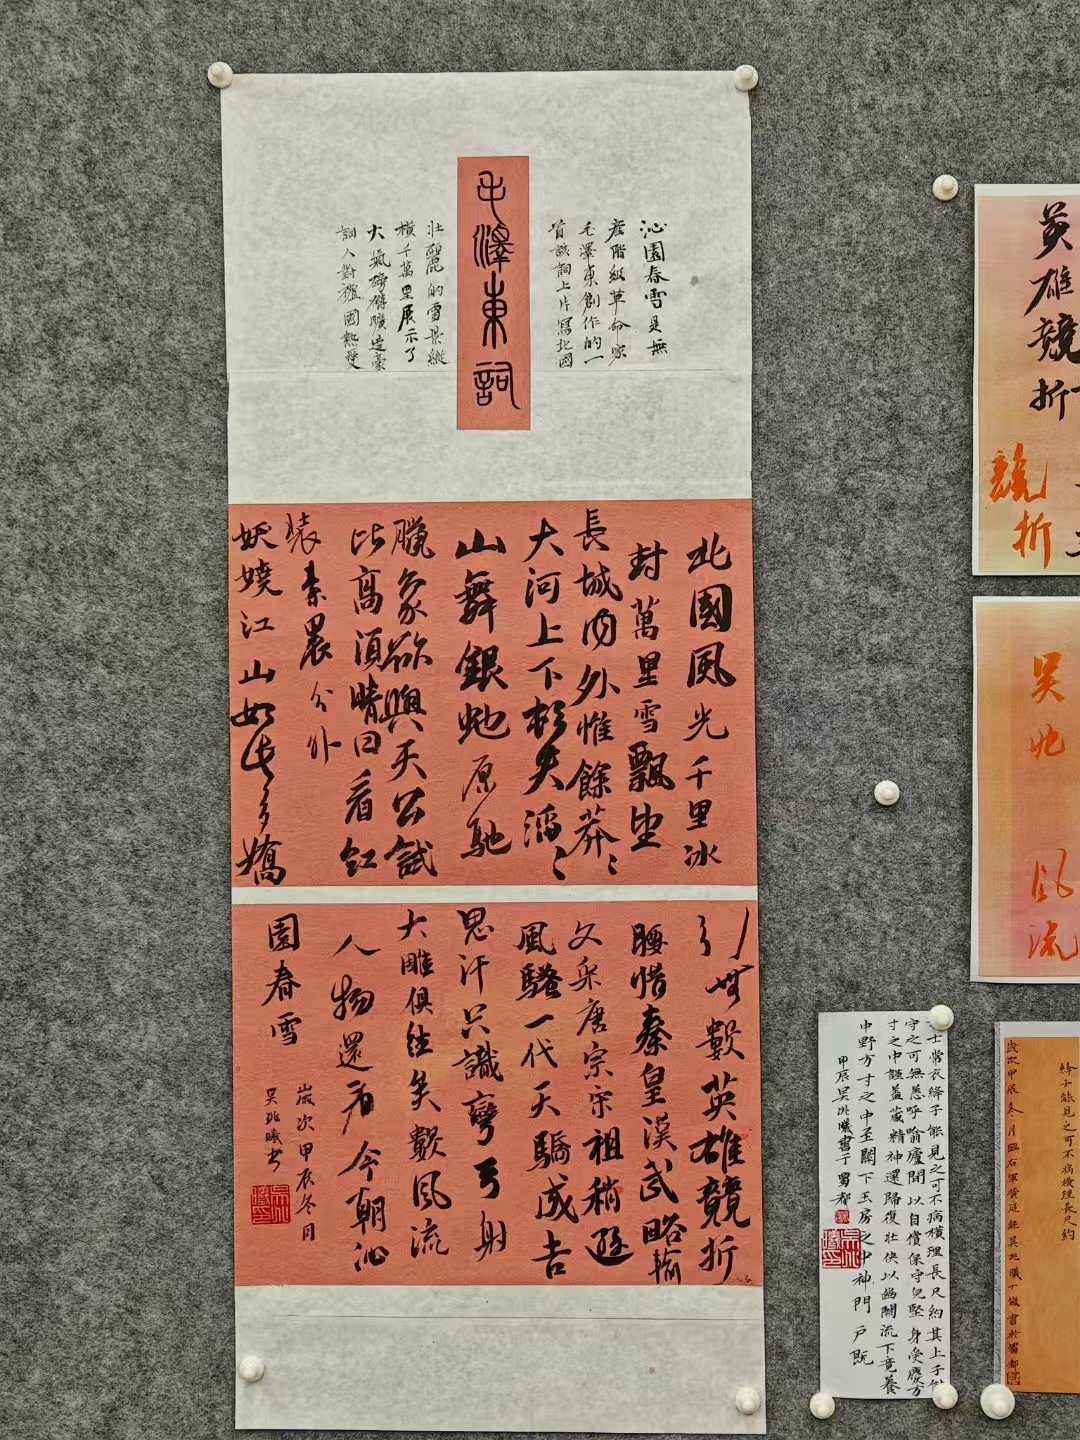 毛澤東詞
沁園春雪是無
產階級革命家
毛澤東創作的一
首該詞上片寫北國
壯麗的雪景縱
橫千萬里展示了
大氣磅礴曠達豪
詞人對祖國熱愛
北國風光千里冰
封萬里雪飄望
長城內外惟餘莽〻
大河上下頓失滔〻
山舞銀蛇原馳
臘象欲與天公試
比高須晴日看紅
裝素裹分外
妖嬈江山如此多嬌
引無數英雄競折
腰惜秦皇漢武略輸
文采唐宗宋祖稍遜
風騷一代天驕成吉
思汗只識彎弓射
大雕俱往矣數風流
人物還看今朝沁
園春雪
歲次甲辰冬月
吳兆曦書
英雄競折
競折
吳兆
風流
士常衣絳子能見之可不病橫理長尺約其上子
守之可無恙呼噏廬間以自償保守兒堅身受慶方
寸之中謹蓋藏精神還歸復壯俠以幽關流下竟養
中野方寸之中至關下玉房之中神門戶既
甲辰吳兆曦書于蜀都
絳子能見之可不病橫理長尺約
歲次甲辰冬月臨右軍黃庭經吳兆曦十歲書於蜀都